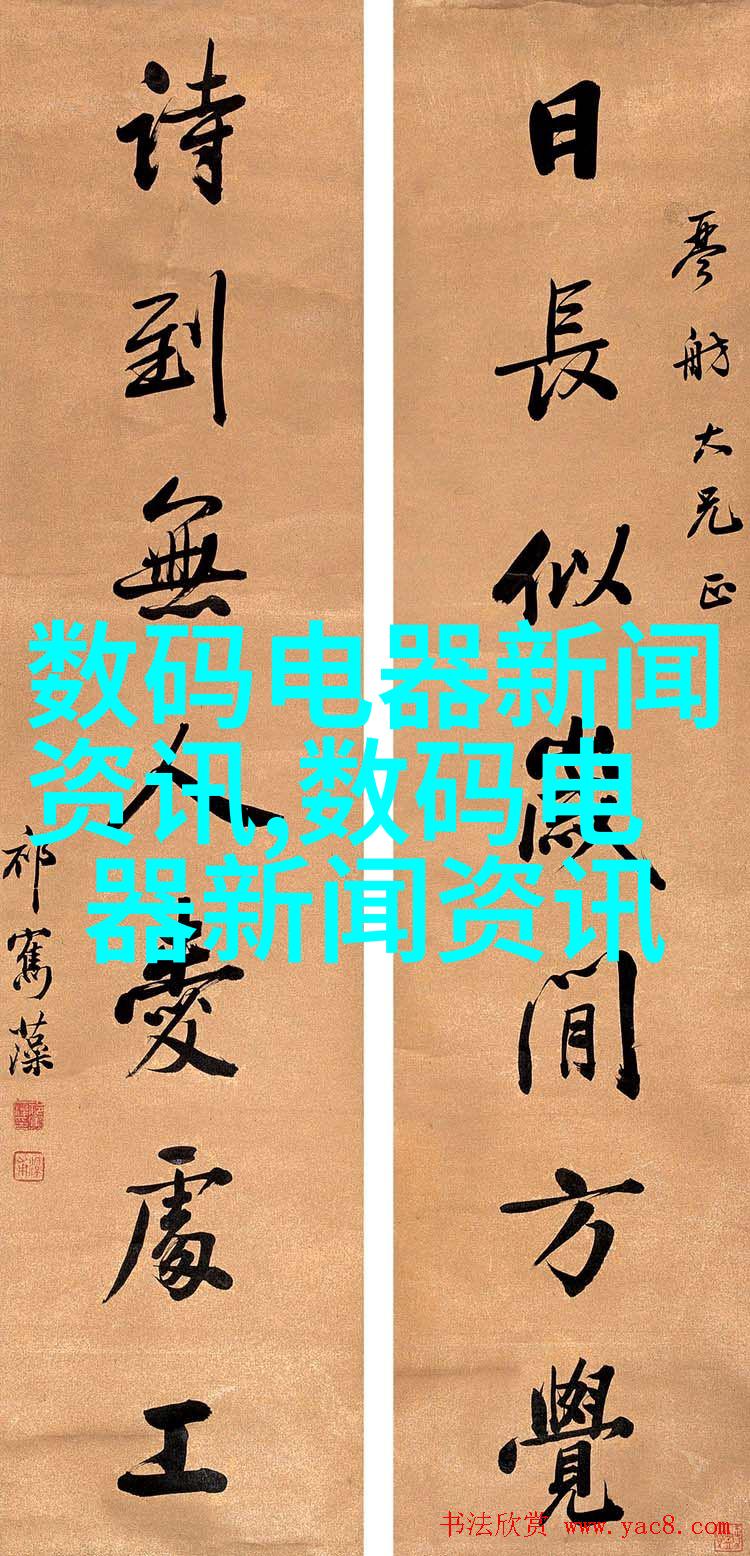 琴舫大兄正
日長似歲閒方覺
詩到無人愛處工
祁寯藻
数码电器新闻
资讯,数码电
器新闻资讯
书法欣赏 www.yac8.com